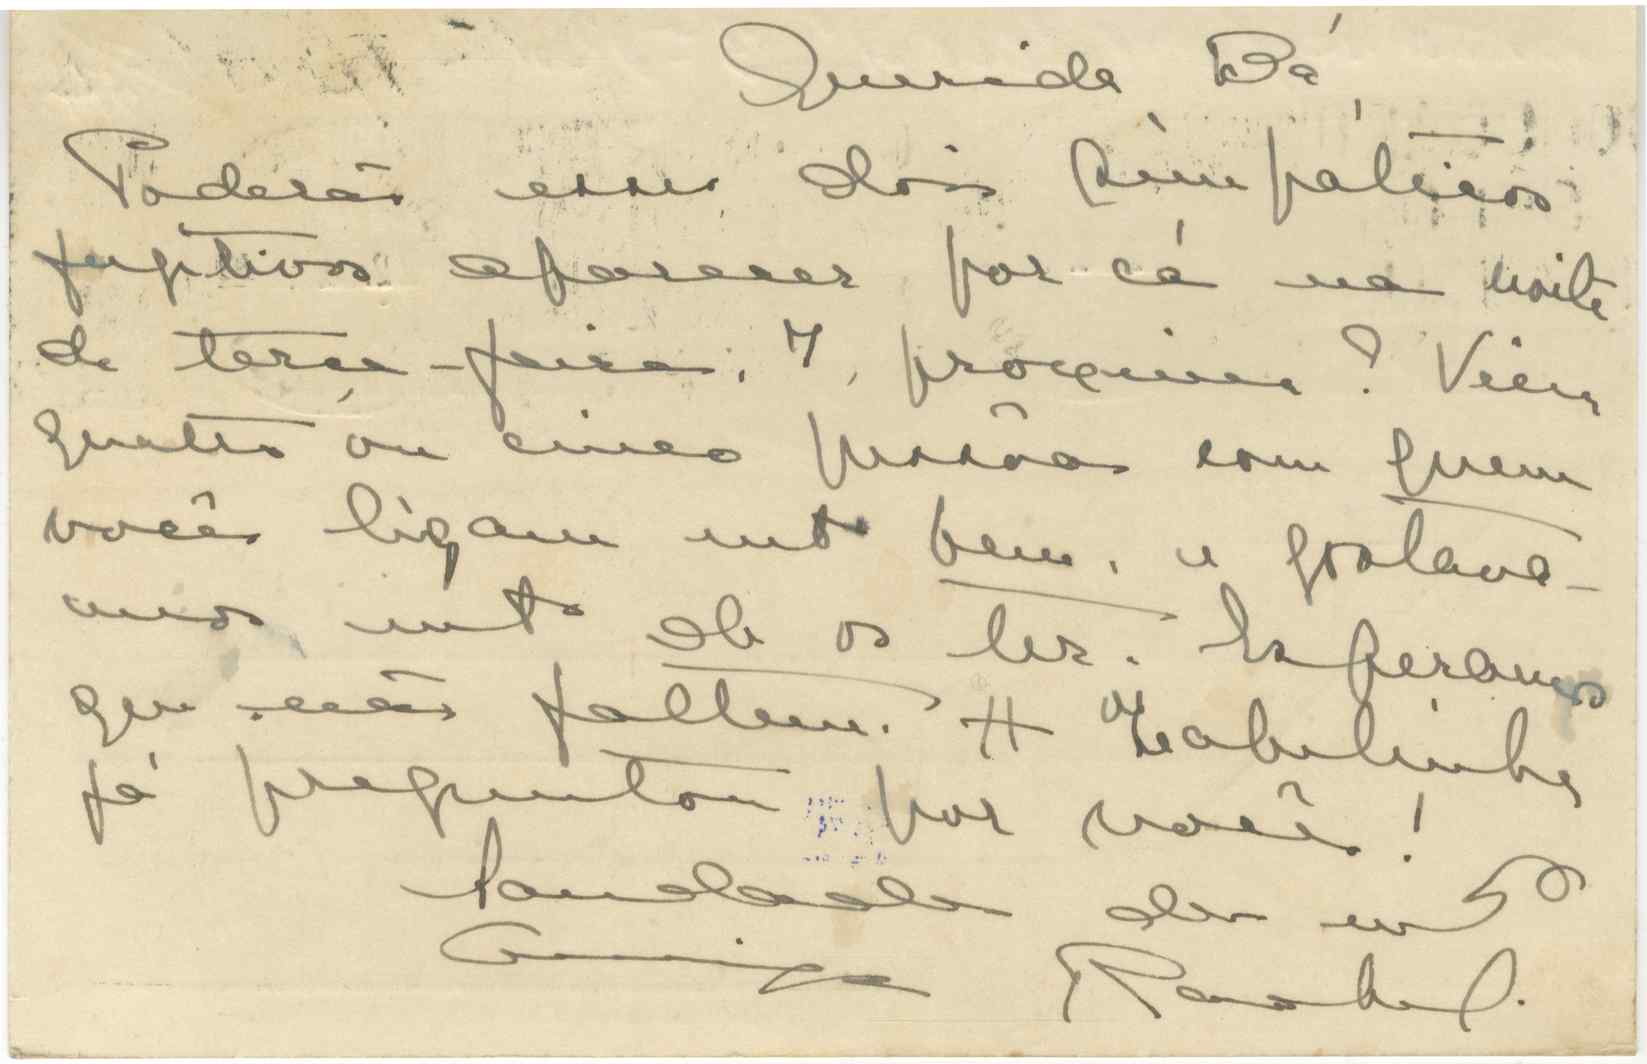 Querida Bá,
Poderão esses dois simpáticos
fugitivos aparecer por cá na noite
de terça-feira, 7, proxima? Vem
quatro ou cinco pessôas com quem
vocês ligam mto bem, e gostava-
mos mto de os ter. Esperamos
que não faltem. A Izabelinha
já preguntou por vocês!
Saudades da
Amiga Rachel.